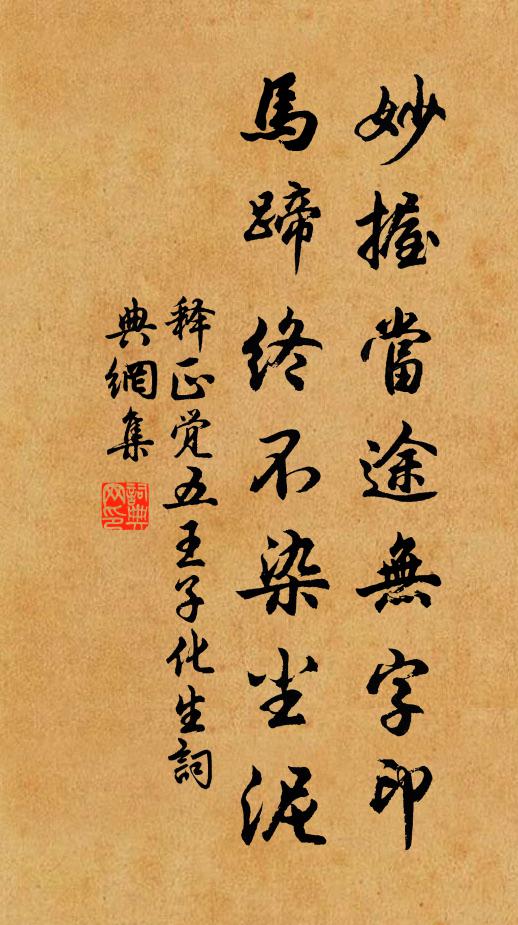 妙握當途無字印
馬蹄終不染尘泥
释正觉五王子化生詞
典網集
詞典
网印